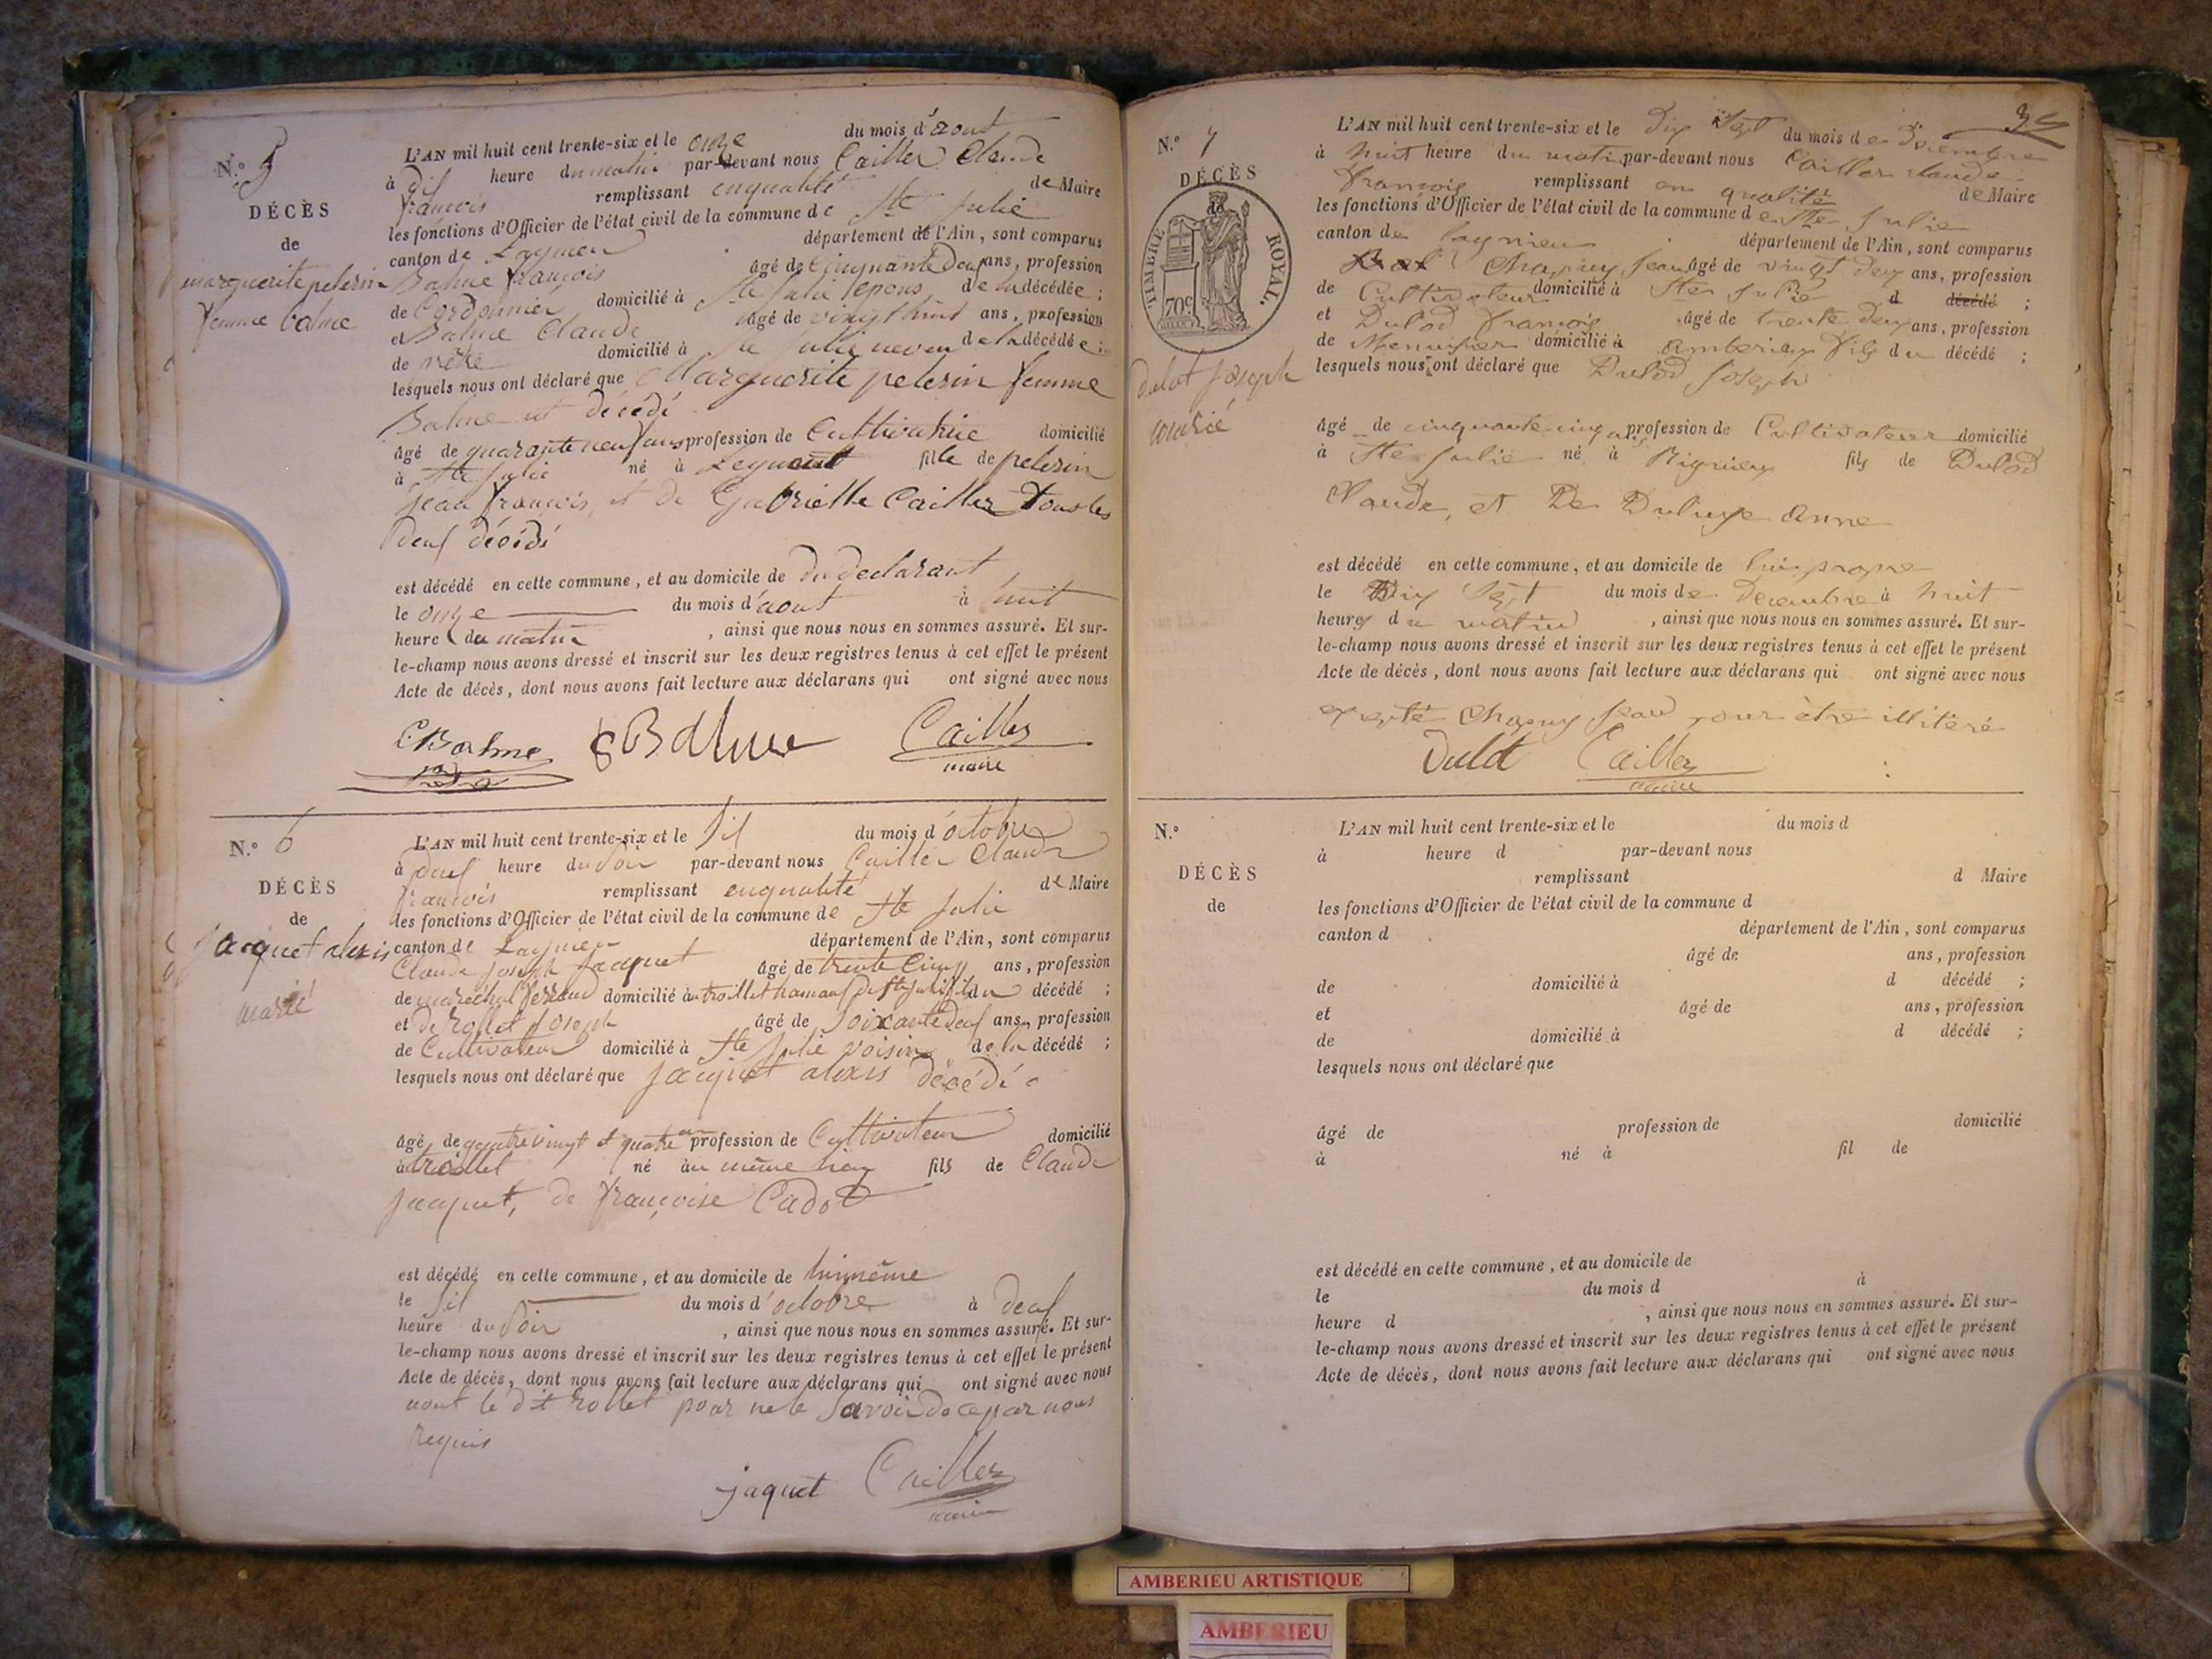 N.º 5
DÉCÈS
de
marguerite pelerin
femme balme
L'AN mil huit cent trente-six et le onze du mois d'aout
à dix heure du matin par-devant nous Cailler Claude
françois remplissant enqualité de Maire
les fonctions d'Officier de l'état civil de la commune de Ste Julie
canton de Lagnieu département de l'Ain, sont comparus
Balme françois âgé de Cinquante deux ans, profession
de Cordonnier domicilié à Ste Julie lepous de la décédée ;
et Balme Claude âgé de vingt huit ans, profession
de domicilié à Ste Julie neveu de la décédée ;
lesquels nous ont déclaré que Marguerite pelerin femme
Balme est décédé
âgé de quarante neuf ans profession de Cultivatrice domicilié
à Ste Julie né à Leyment fille de pelerin
jean françois, et de Gabrielle Cailler tous les
deux décédé
est décédé en cette commune, et au domicile de du declarant
le onze du mois d'aout à huit
heure du matin , ainsi que nous nous en sommes assuré. Et sur-
le-champ nous avons dressé et inscrit sur les deux registres tenus à cet effet le présent
Acte de décès, dont nous avons fait lecture aux déclarans qui ont signé avec nous
C Balme Balme Cailler
maire
N.º 6
DÉCÈS
de
jacquet alexis
marié
L'AN mil huit cent trente-six et le six du mois d'octobre
à deux heure du soir par-devant nous Cailler Claude
françois remplissant enqualité de Maire
les fonctions d'Officier de l'état civil de la commune de Ste Julie
canton de Lagnieu département de l'Ain, sont comparus
Claude joseph jacquet âgé de trente cinq ans, profession
de maréchal ferrand domicilié à trollet hamau de Ste Julie fils du décédé ;
et de rollet joseph âgé de soixante deux ans, profession
de Cultivateur domicilié à Ste Julie voisin de la décédé ;
lesquels nous ont déclaré que jacquet alexis décédé
âgé de quatre vingt et quatre an profession de Cultivateur domicilié
à trollet né au même lieu fils de Claude
jacquet, de françoise Cadot
est décédé en cette commune, et au domicile de luimême
le six du mois d'octobre à deux
heure du soir , ainsi que nous nous en sommes assuré. Et sur-
le-champ nous avons dressé et inscrit sur les deux registres tenus à cet effet le présent
Acte de décès, dont nous avons fait lecture aux déclarans qui ont signé avec nous
nont le dit rollet pour ne le savoir de ce par nous
requis
jaquet Cailler
maire
34
N.º 7
DÉCÈS
de
TIMBRE ROYAL.
70c
dulot joseph
marié
L'AN mil huit cent trente-six et le dix sept du mois de Décembre
à huit heure du matin par-devant nous Cailler claude
françois remplissant en qualité de Maire
les fonctions d'Officier de l'état civil de la commune de Ste Julie
canton de lagnieu département de l'Ain, sont comparus
Chapuy jean âgé de vingt deux ans, profession
de Cultivateur domicilié à Ste Julie d décédé ;
et Dulod françois âgé de trente deux ans, profession
de Menuisier domicilié à Amberieux fils du décédé ;
lesquels nous ont déclaré que Dulod joseph
âgé de cinquante cinq ans profession de Cultivateur domicilié
à Ste Julie né à Rignieux fils de Dulod
Claude, et De anne
est décédé en cette commune, et au domicile de lui propre
le Dix Sept du mois de Decembre à huit
heures du matin , ainsi que nous nous en sommes assuré. Et sur-
le-champ nous avons dressé et inscrit sur les deux registres tenus à cet effet le présent
Acte de décès, dont nous avons fait lecture aux déclarans qui ont signé avec nous
excepté Chapuy jean pour être illitéré
Dulot Cailler
maire
N.º
DÉCÈS
de
L'AN mil huit cent trente-six et le du mois d
à heure d par-devant nous
remplissant d Maire
les fonctions d'Officier de l'état civil de la commune d
canton d département de l'Ain, sont comparus
âgé de ans, profession
de domicilié à d décédé ;
et âgé de ans, profession
de domicilié à d décédé ;
lesquels nous ont déclaré que
âgé de profession de domicilié
à né à fil de
est décédé en cette commune, et au domicile de
le du mois d à
heure d , ainsi que nous nous en sommes assuré. Et sur-
le-champ nous avons dressé et inscrit sur les deux registres tenus à cet effet le présent
Acte de décès, dont nous avons fait lecture aux déclarans qui ont signé avec nous
AMBERIEU ARTISTIQUE
AMBERIEU